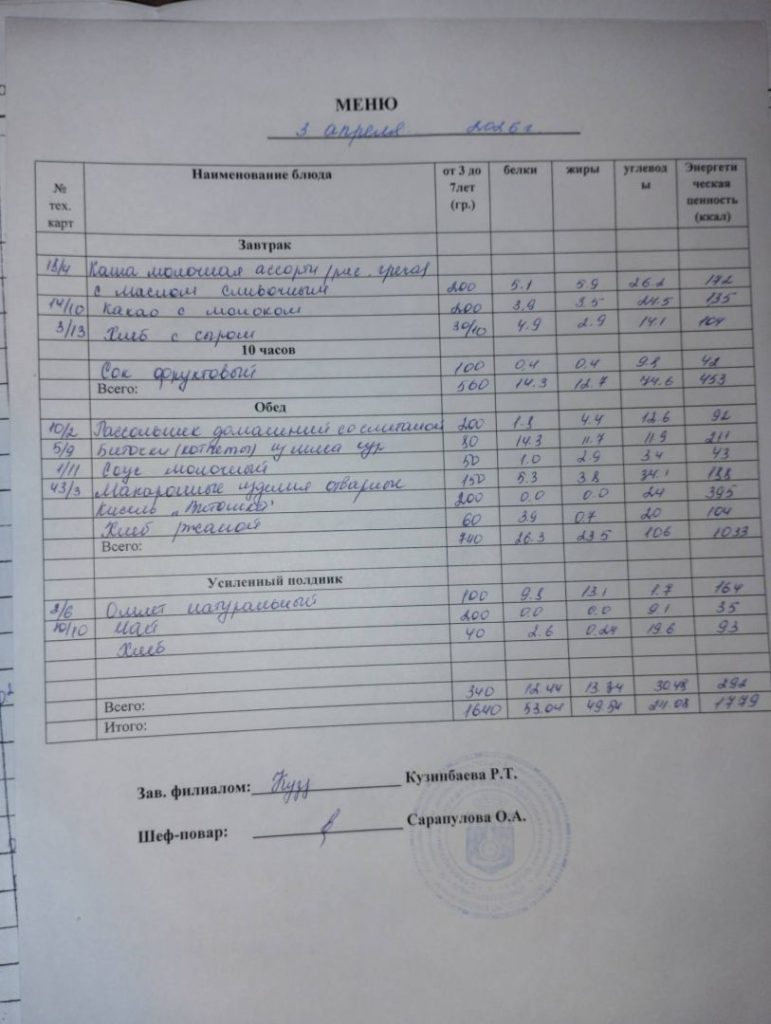 МЕНЮ
3 апреля 2025 г
№ тех. карт Наименование блюда от 3 до 7лет (гр.) белки жиры углеводы Энергетическая ценность (ккал)
Завтрак
13/4 Каша молочная ассорти (рис, греча)
с маслом сливочным 200 5.1 5.9 26.2 172
14/10 Какао с молоком 200 3,9 3.5 24.5 135
3/13 Хлеб с сыром 30/10 4.9 2.9 14.1 104
10 часов
Сок фруктовый 100 0,4 0,4 9.8 42
Всего: 560 14.3 12.7 74.6 453
Обед
10/2 Рассольник домашний со сметаной 200 1.8 4.4 12.6 92
5/9 Биточки (котлеты) из мяса кур 80 14.3 11.7 11.9 211
1/11 Соус молочный 50 1.0 2.9 3.4 43
43/3 Макаронные изделия отварные 150 5.3 3.8 34.1 188
Кисель „Витошка" 200 0.0 0.0 24 395
Хлеб ржаной 60 3.9 0.7 20 104
Всего: 740 26.3 23.5 106 1033
Усиленный полдник
2/6 Омлет натуральный 100 9.8 13.1 1.7 164
10/10 Чай 200 0.0 0.0 9.1 35
Хлеб 40 2.6 0.24 19.6 93
Всего: 340 12.44 13.34 30.48 292
Итого: 1640 53.04 49.54 211.08 1779
Зав. филиалом: Кузинбаева Р.Т.
Шеф-повар: Сарапулова О.А.